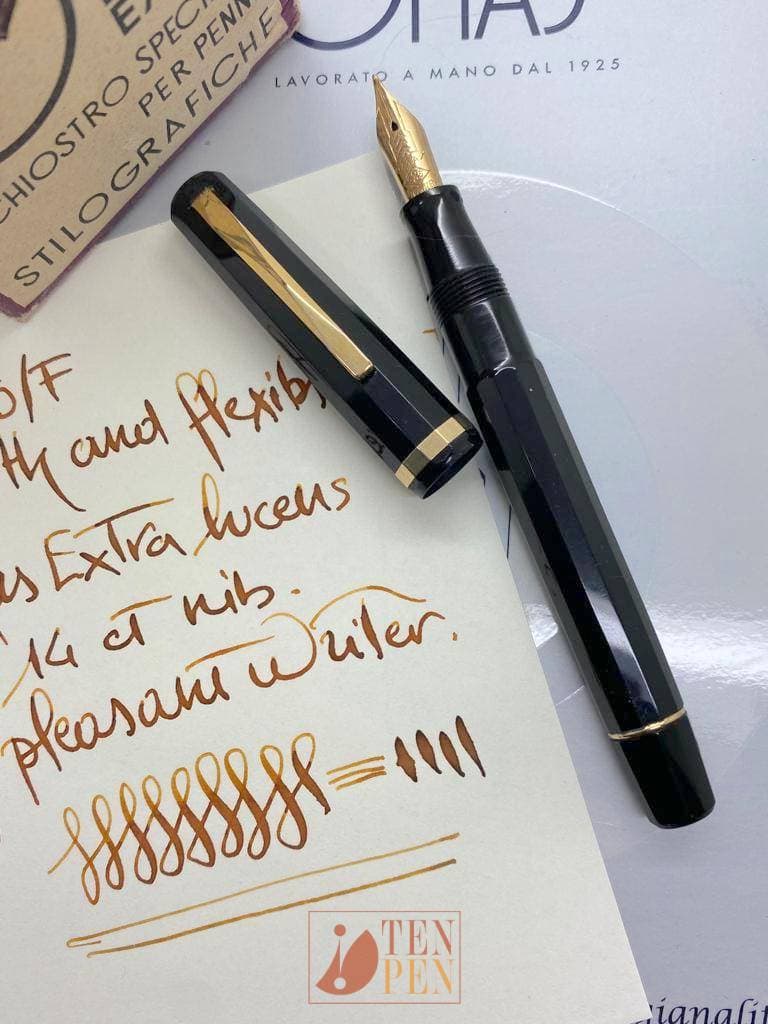 OMAS
LAVORATO A MANO DAL 1925
CHIOSTRO SPECI
PER PENN
STILOGRAFICHE
O/F
th and flexib
as Extra lucens
14 ct nib.
pleasant writer.
TEN
PEN
gianalit